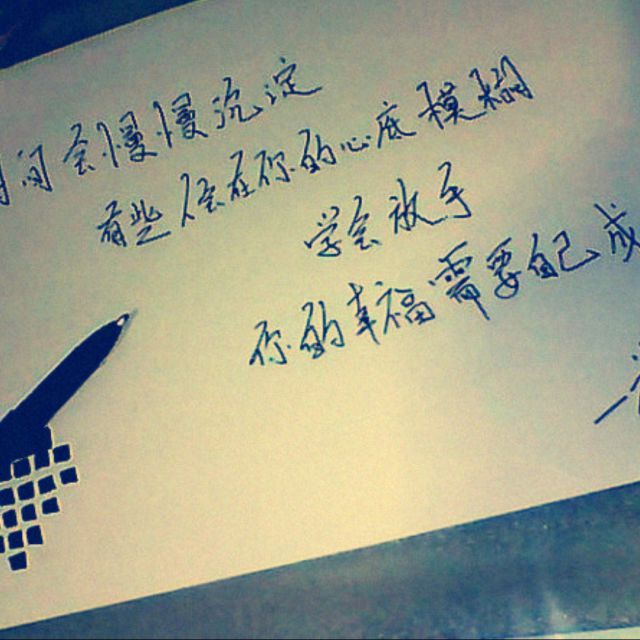 时间会慢慢沉淀
有些人会在你的心底模糊
学会放手
你的幸福需要自己成